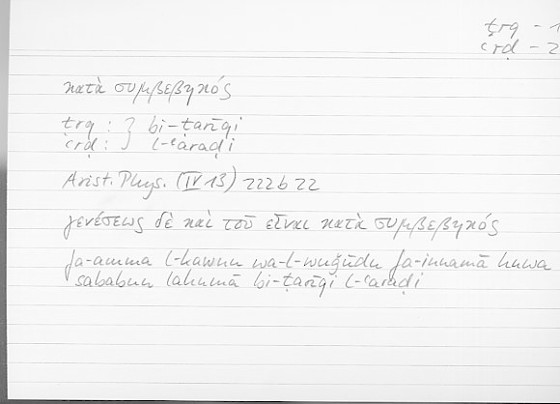 ṭrq - 1
ʿrḍ - 2
κατὰ συμβεβηκός
ṭrq : } bi-ṭarīqi
ʿrḍ : } l-ʿaraḍi
Arist. Phys. (IV 13) 222 b 22
γενέσεως δὲ καὶ τοῦ εἶναι κατὰ συμβεβηκός
fa-amma l-kawnu wa-l-wuǧūdu fa-innamā huwa
sababun lahumā bi-ṭarīqi l-ʿaraḍi